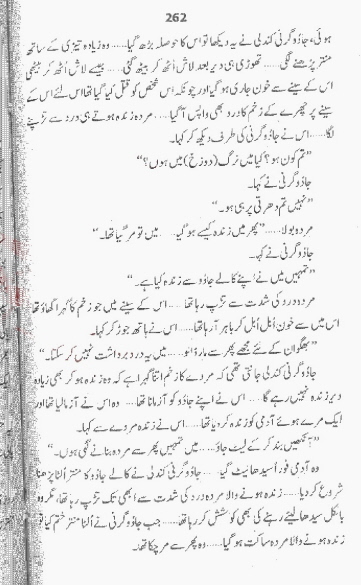 262
ہوئی، جادوگرنی کندلی نے یہ دیکھا تو اس کا حوصلہ بڑھ گیا..... وہ زیادہ تیزی کے ساتھ
منتر پڑھنے لگی..... تھوڑی ہی دیر بعد لاش اُٹھ کر بیٹھ گئی..... جیسے لاش اُٹھ کر بیٹھی
اس کے سینے سے خون جاری ہو گیا اور چونکہ اس شخص کو قتل کیا گیا تھا اس لئے اس کے
سینے پر چھرے کے زخم کا درد بھی واپس آ گیا..... مردہ زندہ ہوتے ہی درد سے تڑپنے
لگا..... اس نے جادوگرنی کی طرف دیکھ کر کہا۔
”تم کون ہو؟ کیا میں نرگ (دوزخ) میں ہوں؟“
جادوگرنی نے کہا۔
”نہیں تم دھرتی پر ہی ہو۔“
مردہ بولا..... ”پھر میں زندہ کیسے ہو گیا..... میں تو مر گیا تھا۔“
جادوگرنی نے کہا۔
”تمہیں میں نے اپنے کالے جادو سے زندہ کیا ہے۔“
مردہ درد کی شدت سے تڑپ رہا تھا..... اس کے سینے میں جو زخم کا گہرا گھاؤ تھا
اس میں سے خون اُبل اُبل کر باہر آ رہا تھا..... اس نے ہاتھ جوڑ کر کہا۔
”بھگوان کے لئے مجھے پھر سے مار ڈالو..... میں یہ درد برداشت نہیں کر سکتا۔“
جادوگرنی کندلی جانتی تھی کہ مردے کا زخم اتنا گہرا ہے کہ وہ زندہ ہو کر بھی زیادہ
دیر زندہ نہیں رہے گا..... اس نے اپنے جادو کو آزمانا تھا..... وہ اس نے آزما لیا تھا اور
ایک مرے ہوئے آدمی کو زندہ کر دیا تھا..... اس نے زندہ مردے سے کہا۔
”آنکھیں بند کر کے لیٹ جاؤ..... میں تمہیں پھر سے مردہ بنانے لگی ہوں۔“
وہ آدمی فوراً سیدھا لیٹ گیا..... جادوگرنی کندلی نے کالے جادو کا منتر اُلٹا پڑھنا
شروع کر دیا..... زندہ ہونے والا مردہ درد کی شدت سے ابھی تک تڑپ رہا تھا، مگر وہ
بالکل سیدھا لیٹے رہنے کی بھی کوشش کر رہا تھا..... جب جادوگرنی نے اُلٹا منتر ختم کیا تو
زندہ ہونے والا مردہ ساکت ہو گیا..... وہ پھر سے مر چکا تھا۔